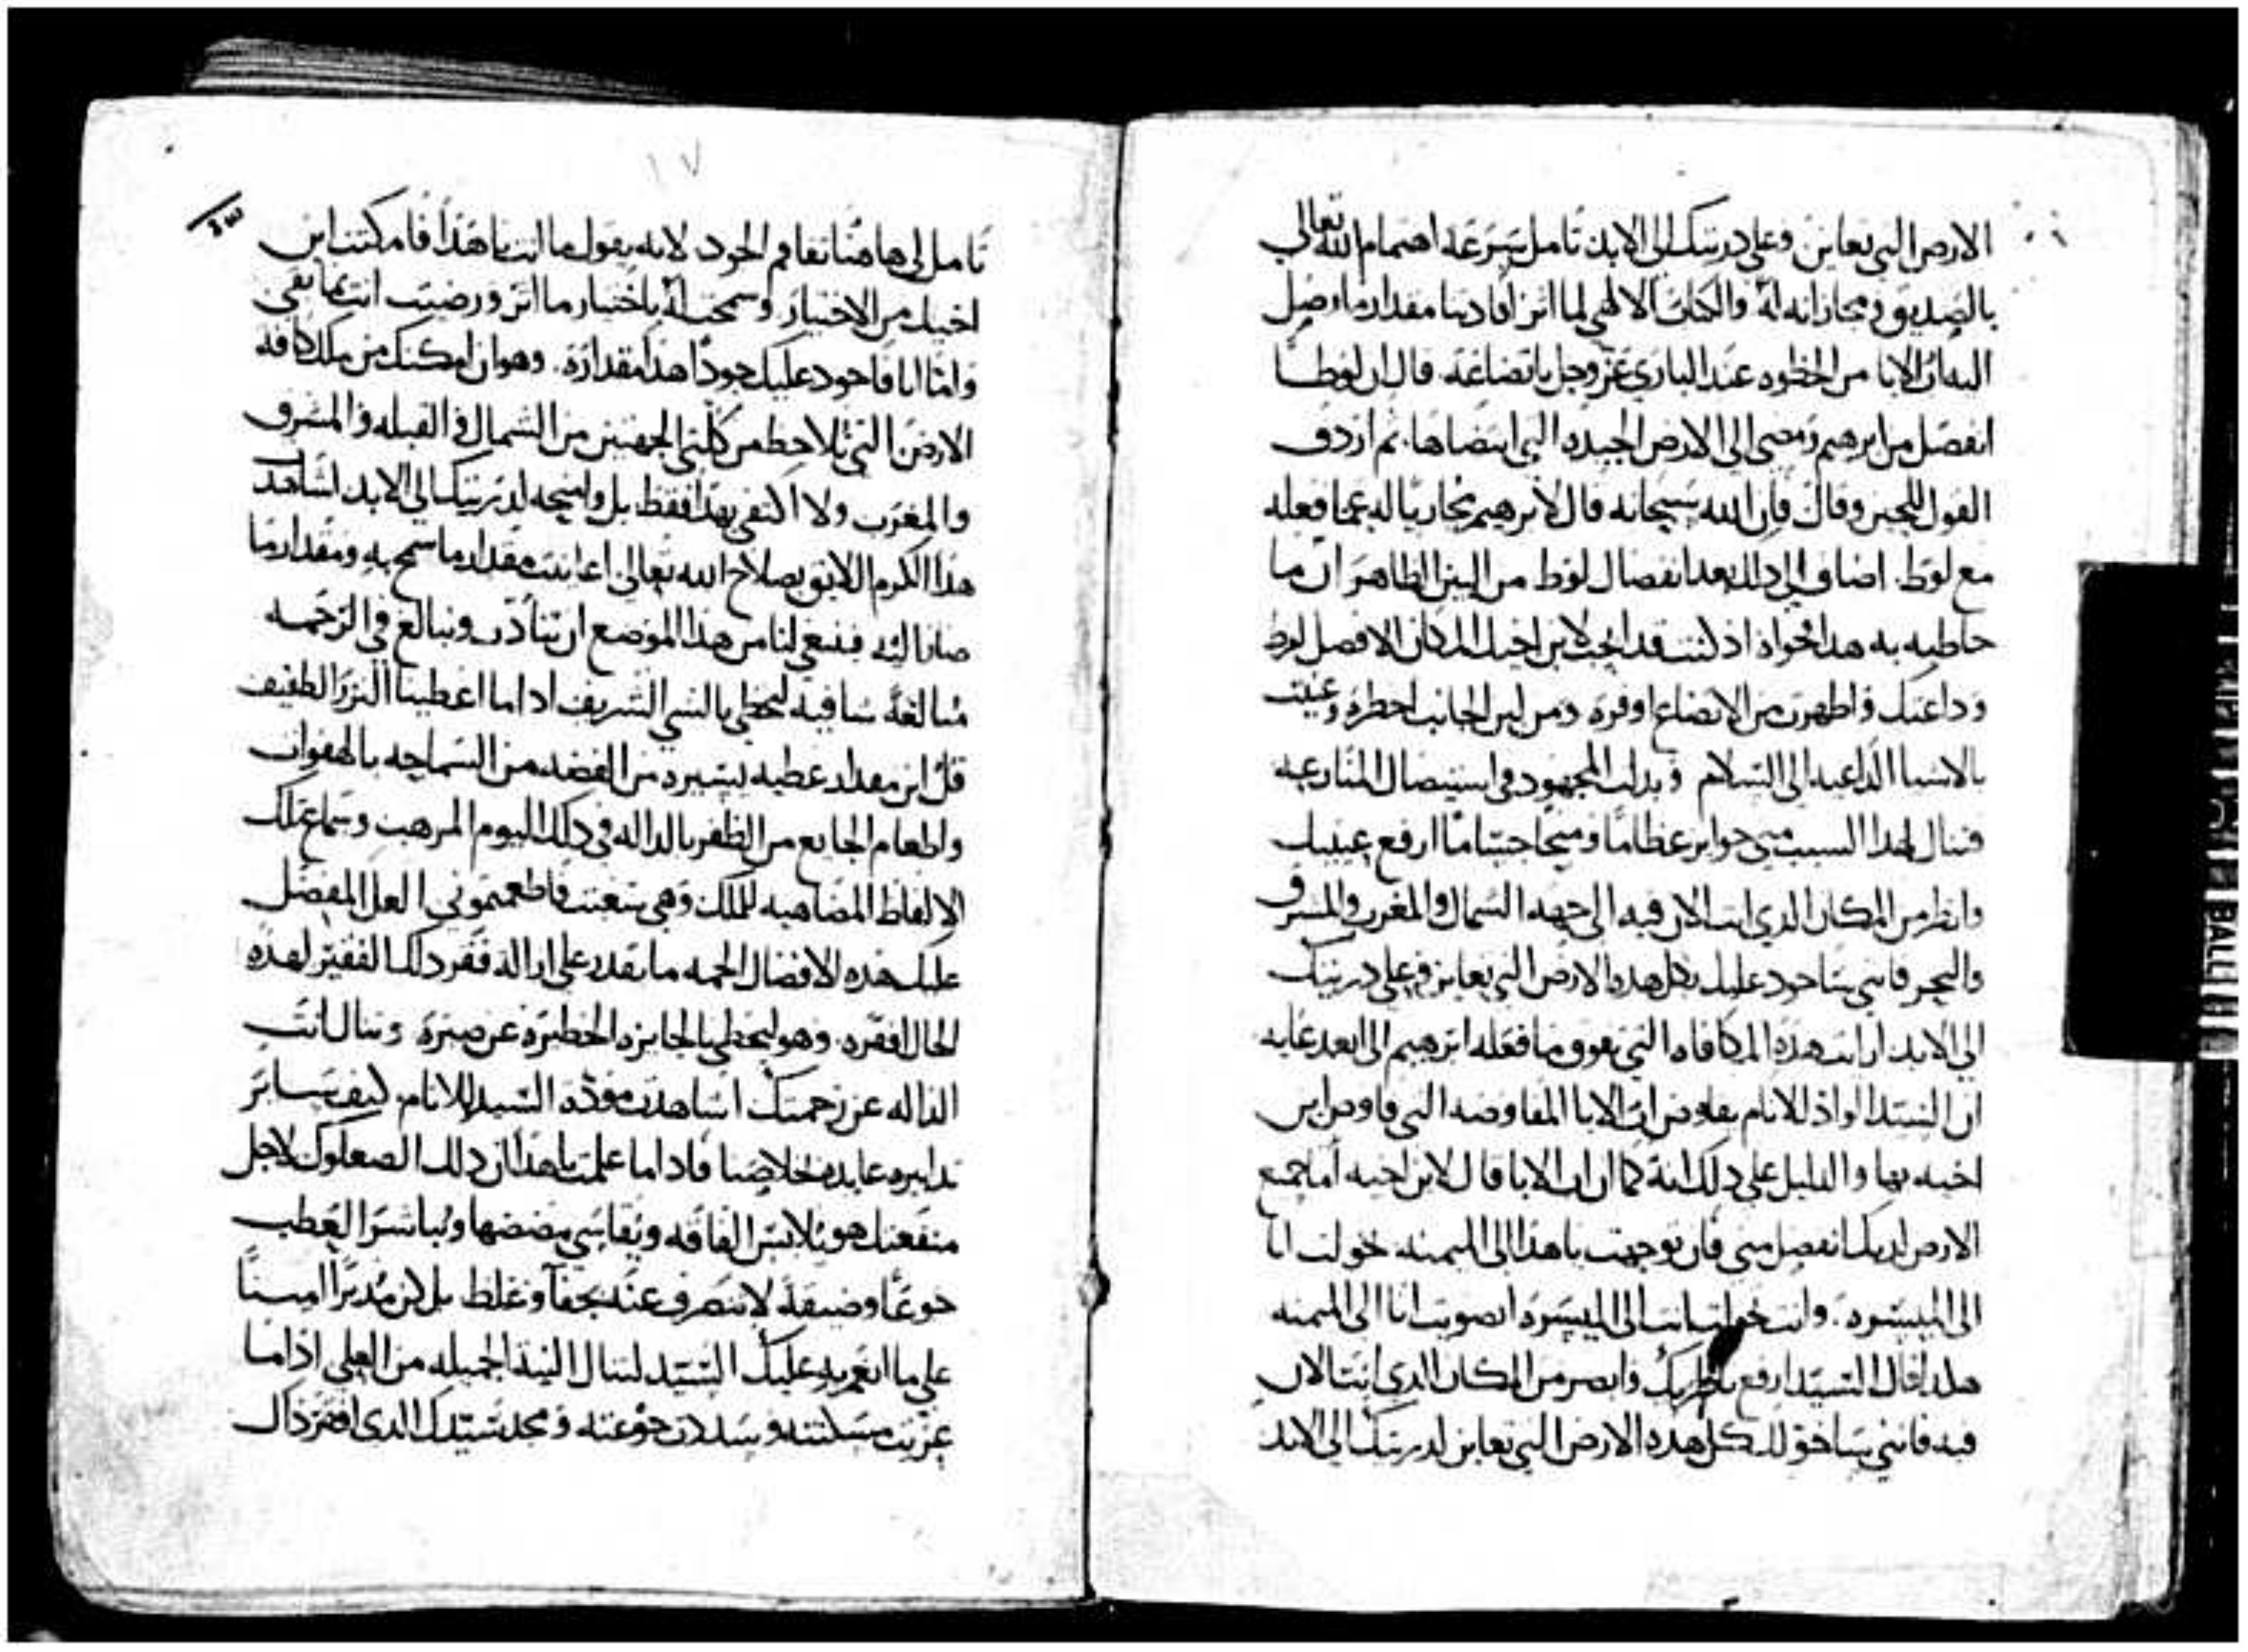 الارض التي تعاين وعلي دريتك الي الابد تامل سرعة اهتمام الله تعالي
بالصديق ومجازاته له والكتاب الالهي لما اثر افادتنا مقدار ما وصل
اليه اب الابا من الحظوه عند الباري عز وجل باتضاعه قال ان لوطا
انفصل من ابرهيم ومضي الي الارض الجيده التي انتضاها ثم اردف
القول للحين وقال فان الله سبحانه قال لابرهيم مجازيا له عما فعله
مع لوط اضاف الي دلك بعد انفصال لوط من البين الظاهر ان ما
خاطبه به هدا فحواه اذ كنت قد ابحت لابن اخيك المكان الافضل لوط
وداعتك واظهرت من الاتضاع اوفره ومن لين الجانب اخطره وعنيت
بالاشيا الداعيه الي السلام وبدلت المجهود في استيصال المنازعه
فتنال لهدا السبب مني جوايز عظاما ومنحا جساما ارفع عينيك
وانظر من المكان الدي انت الان فيه الي جهه الشمال والمغرب والمشرق
والبحر فانني ساجود عليك بكل هده الارض التي تعاين وعلي دريتك
الي الابد ارايت هذه المكافاه التي تفوق ما فعله ابرهيم الي ابعد غايه
ان السيد الواد للانام يفاوض اب الابا المفاوضه التي فاوض ابن
اخيه بها والدليل علي دلك انه كما ان اب الابا قال لابن اخيه اما جميع
الارض لديك انفصل مني فان توجهت يا هدا الي الميمنه خولت انا
الي الميسره وانت خولت انت الي الميسره انصويت انا الي الميمنه
هكدا قال السيد ارفع ناظريك وابصر من المكان الدي انت الان
فيه فانني ساخولك كل هده الارض التي تعاين لدريتك الي الابد
١٧
تامل لي هاهنا تفاقم الجود لانه يقول ما انت يا هذا فامكنت ابن
اخيك من الاختيار وسمحت له باختيار ما اثر ورضيت انت بما بقي
واما انا فاجود عليك جودا هدا مقداره وهو ان امكنك من ملك كافه
الارض التي تلاحظ من كلتي الجهتين من الشمال والقبله والمشرق
والمغرب ولا اكتفي بهدا فقط بل وامنحه لدريتك الي الابد اشاهد
هدا الكرم اللايق بصلاح الله تعالي اعاينت مقدار ما سمح به ومقدار ما
صانا اليه فينبغي لنا من هدا الموضع ان نتادب ونبالغ في الرحمه
مبالغة شافيه لنحظي بالشي الشريف ادا ما اعطينا النزر الطفيف
قل اين مقدار عطيه يسيره من الفضه من السماحه بالهفوات
واطعام الجايع من الظفر بالداله في دلك اليوم المرهب وسماع تلك
الالفاظ المضاهيه للملك وهي سغبت فاطعمتموني العل المفضل
عليك هده الافضال الجمه ما يقدر علي ازاله فقر دلك الفقير لهذه
الحال افقره وهو ليحظي بالجايزه الخطيره عن صبره وتنال انت
الداله عن رحمتك اشاهدت موده السيد للانام كيف ساير
تدابيره عايده لخلاصنا فادا ما علمت يا هدا ان دلك الصعلوك لاجل
منفعتك هو يلابس الفاقه ويقاسي مضضها ويباشر العطب
جوعا وضيقة لا تنصرف عنه بجفآ وغلظ بل كن مدبرا امينا
علي ما انعم به عليك السيد لتنال النيه الجميله من العلي اذا ما
عزيت مسكنته وسددت جوعته ومجد سيدك الدي افقر ذاك